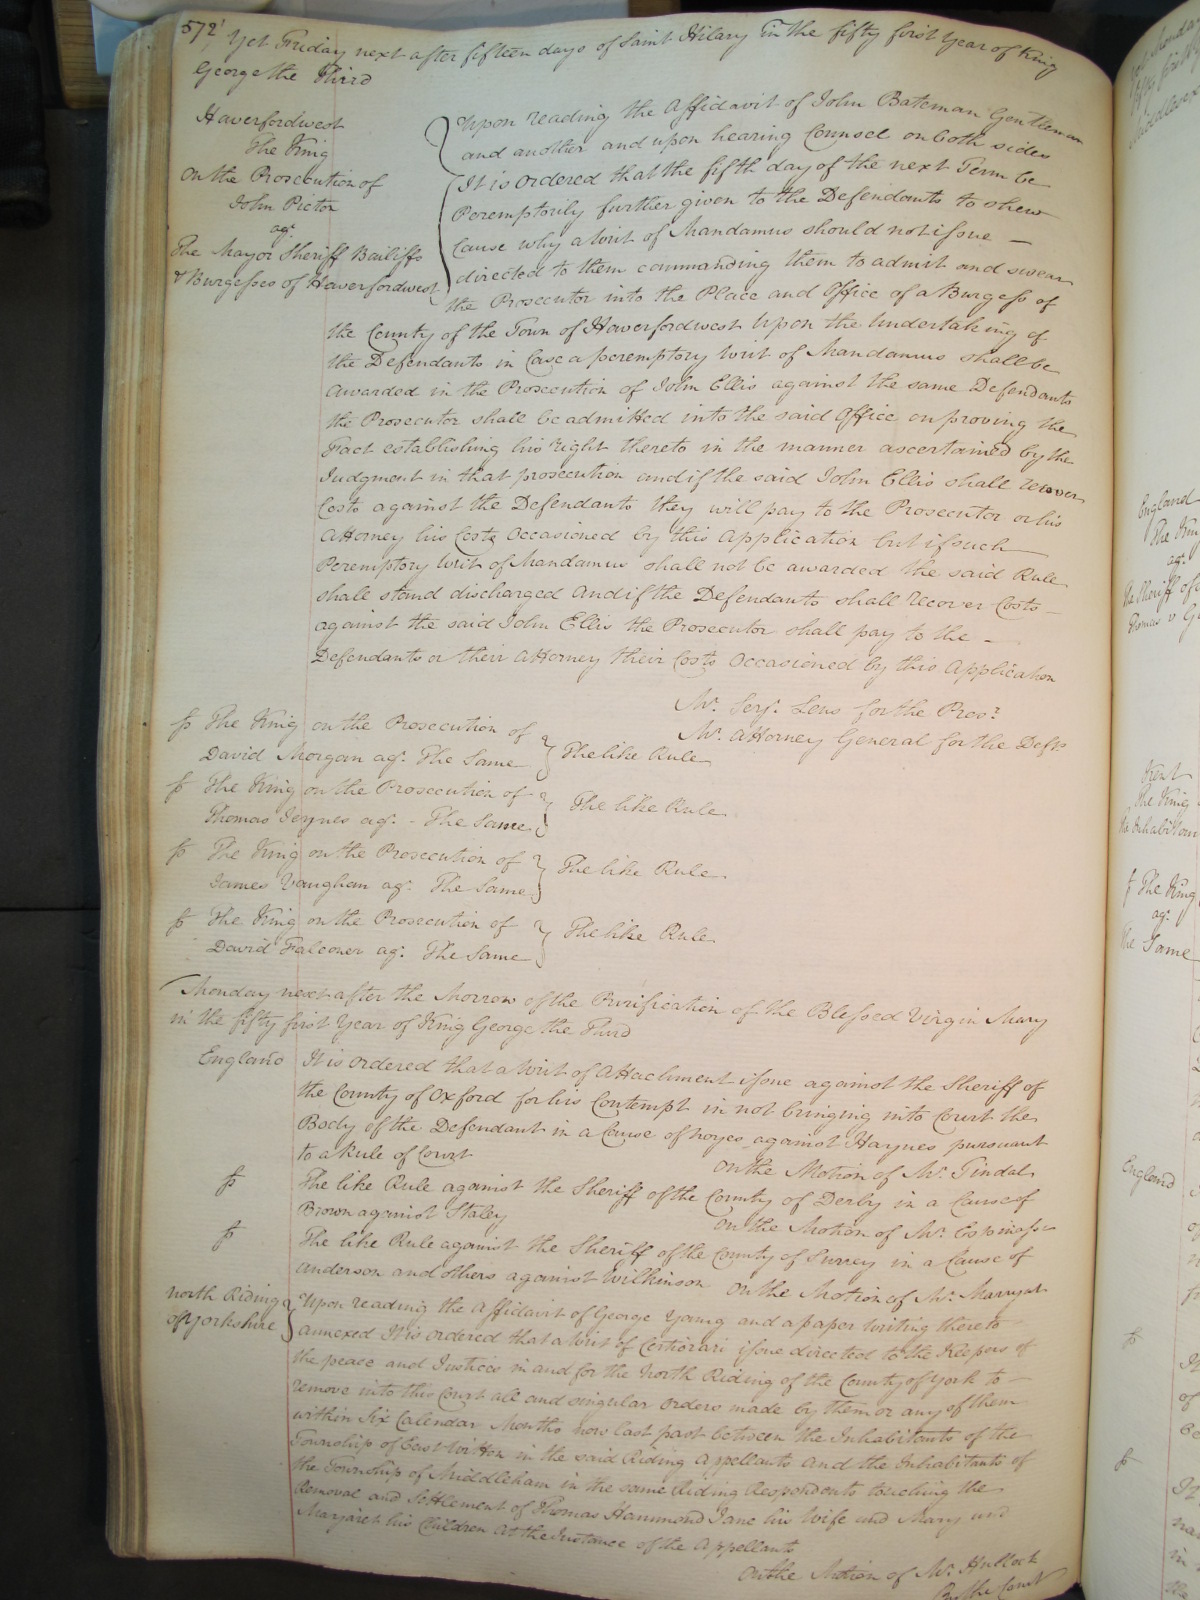 572
Yet Friday next after fifteen days of Saint Hilary in the fifty first Year of King
George the Third
Haverfordwest
The King
on the Prosecution of
John Pictor
agt
The Mayor Sheriff Bailiffs
& Burgesses of Haverfordwest
Upon reading the Affidavit of John Bateman Gentleman
and another and upon hearing Counsel on both sides
It is ordered that the fifth day of the next Term be
Peremptorily further given to the Defendants to shew
Cause why a Writ of Mandamus should not issue —
directed to them commanding them to admit and swear
the Prosecutor into the Place and Office of a Burgess of
the County of the Town of Haverfordwest Upon the Undertaking of
the Defendants in Case a peremptory Writ of Mandamus shall be
awarded in the Prosecution of John Ellis against the same Defendants
the Prosecutor shall be admitted into the said Office on proving the
Fact establishing his right thereto in the manner ascertained by the
Judgment in that prosecution and if the said John Ellis shall recover
Costs against the Defendants they will pay to the Prosecutor or his
Attorney his Costs Occasioned by this Application but if such
Peremptory Writ of Mandamus shall not be awarded the said Rule
shall stand discharged And if the Defendants shall recover Costs
against the said John Ellis the Prosecutor shall pay to the —
Defendants or their Attorney their Costs Occasioned by this Application
Mr. Serjt. Lens for the Prosr.
Mr. Attorney General for the Defts
The King on the Prosecution of
David Morgan agt. The Same
The like Rule
The King on the Prosecution of
Thomas Jeynes agt. - The Same
The like Rule
The King on the Prosecution of
James Vaughan agt. The Same
The like Rule
The King on the Prosecution of
David Falconer agt. The Same
The like Rule
Monday next after the Morrow of the Purification of the Blessed Virgin Mary
in the fifty first Year of King George the Third
England
It is ordered that a Writ of Attachment issue against the Sheriff of
the County of Oxford for his Contempt in not bringing into Court the
Body of the Defendant in a Cause of Noyes against Haynes pursuant
to a Rule of Court
On the Motion of Mr. Tindal
The like Rule against the Sheriff of the County of Derby in a Cause of
Brown against Staley
On the Motion of Mr. Espinasse
The like Rule against the Sheriff of the County of Surrey in a Cause of
Anderson and others against Wilkinson
On the Motion of Mr. Marryat
North Riding
of Yorkshire
Upon reading the Affidavit of George Young and a paper Writing thereto
annexed It is ordered that a Writ of Certiorari issue directed to the Keepers of
the peace and Justices in and for the North Riding of the County of York to —
remove into this Court all and singular orders made by them or any of them
within Six Calendar Months now last past between the Inhabitants of the
Township of East Witton in the said Riding Appellants and the Inhabitants of
the Township of Middleham in the same Riding Respondents touching the
Removal and Settlement of Thomas Hammond Jane his Wife and Mary and
Margaret his Children At the Instance of the Appellants
On the Motion of Mr. Hullock
By the Court
England
The King
agt.
the Sheriff of
Kent
The King
Inhabitan
The King
agt.
The Same
England